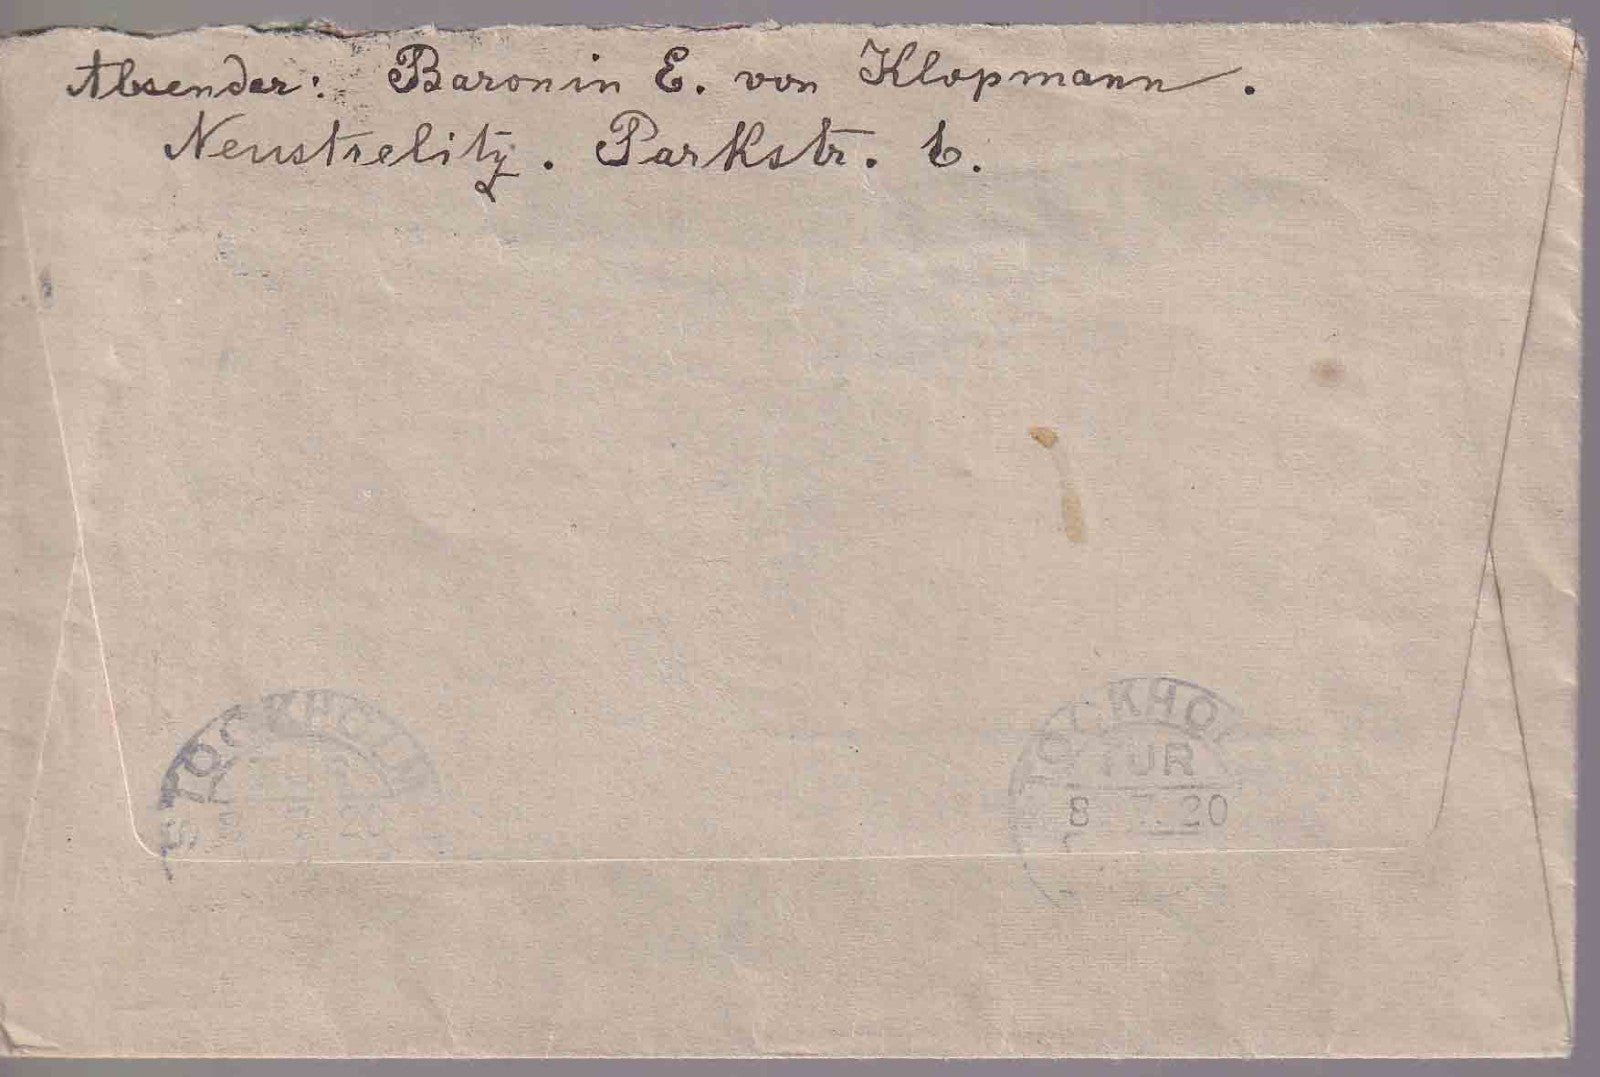 Absender: Baronin E. von Klopmann.
Neustrelitz. Parkstr. 6.
STOCKHOLM
20
STOCKHOL
TUR
8 7. 20